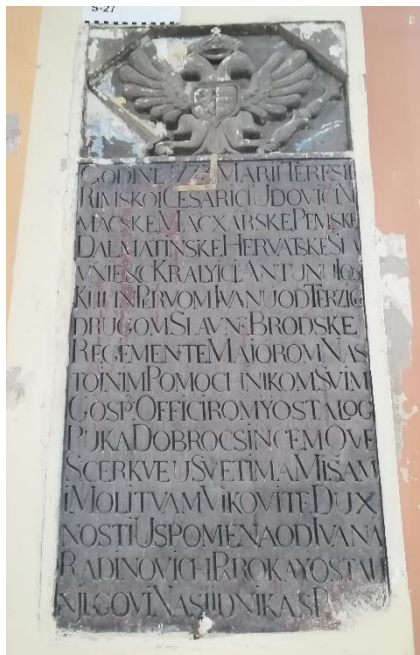 S-27
GODINE 1773 MARII TERESII
RIMSKOI CESARICI UDOVICI N
MACSKE MACXARSKE PEMSKE
DALMATINSKE HERVATSKE SLA
VNIESC KRALYICI ANTUNU IOS
KULIN PERVOM IVANU OD TERZIG
DRUGOM SLAVNE BRODSKE
REGEMENTE MAIOROM NAS
TOINIM POMOCHNIKOM SVIM
GOSP OFFICIROM Y OSTALOG
PUKA DOBROCSINCEM OVE
SCERKVE U SVETIMA MISAM
I MOLITVAM VIKOVITE DUX
NOSTI USPOMENA OD IVANA
RADINOVICH P ROKA Y OSTALI
NJEGOVI NASLIDNIKA